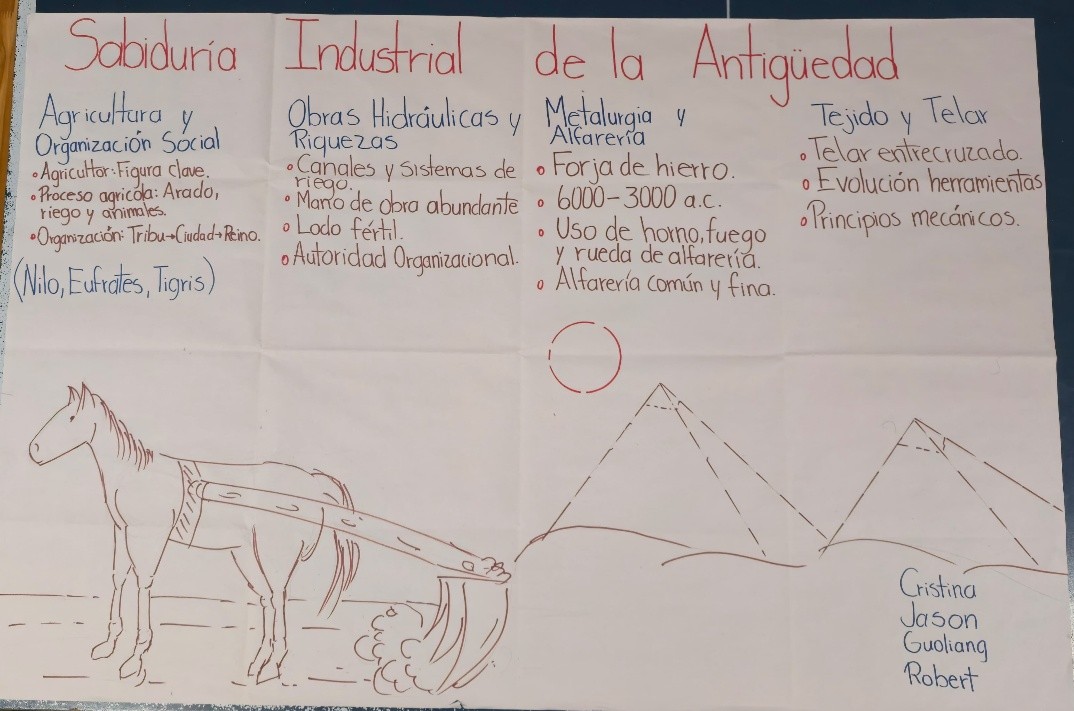 Sabiduría Industrial de la Antigüedad
Agricultura y
Organización Social
• Agricultor: Figura clave.
• Proceso agrícola: Arado,
riego y animales.
• Organización: Tribu→Ciudad→Reino.
(Nilo, Eufrates, Tigris)
Obras Hidráulicas y
Riquezas
• Canales y Sistemas de
riego.
• Mano de obra abundante
• Lodo fértil.
• Autoridad Organizacional.
Metalurgia y
Alfarería
• Forja de hierro.
• 6000-3000 a.c.
• Uso de horno, fuego
y rueda de alfarería.
• Alfarería común y fina.
Tejido y Telar
• Telar entrecruzado.
• Evolución herramientas
• Principios mecánicos.
Cristina
Jason
Guoliang
Robert